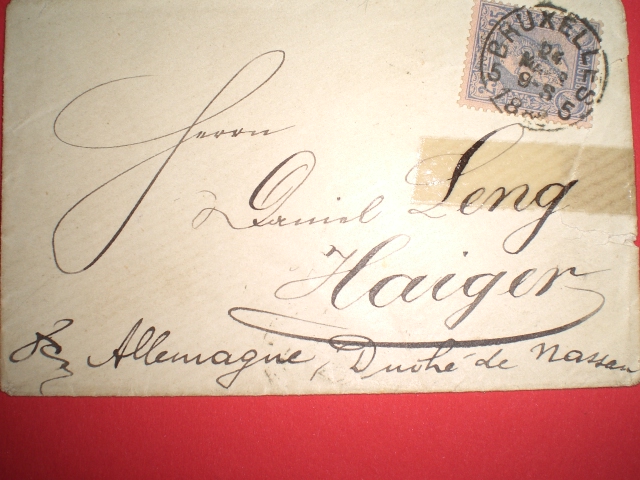 BRUXELLES 5
Herrn
Daniel Leng
Haiger
Allemagne, Duché de Nassau